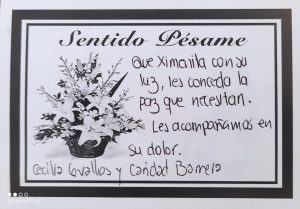 Sentido Pésame
Que Ximenita con su
luz, les conceda la
paz que necesitan.
Les acompañamos en
su dolor.
Cecilia Cevallos y Caridad